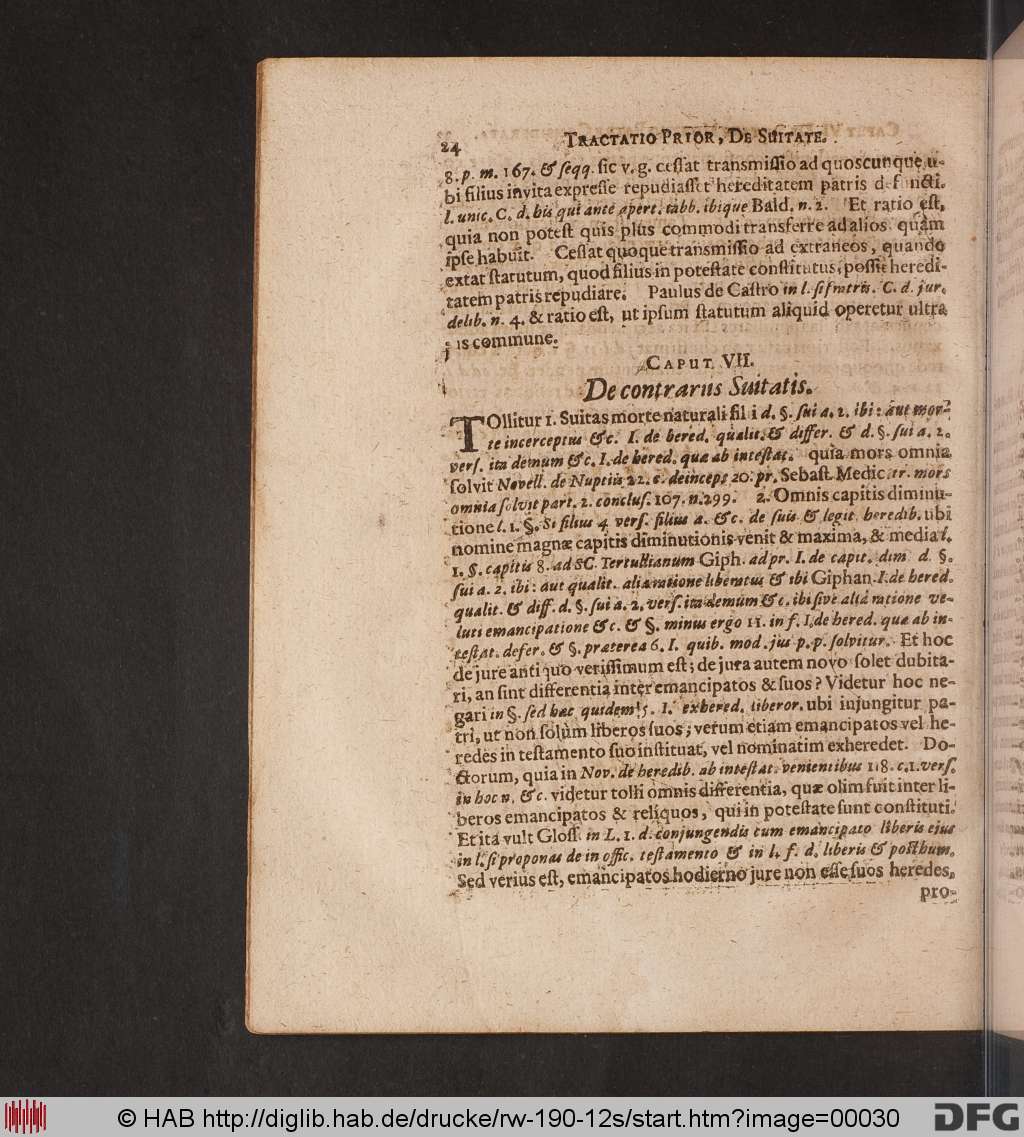 24 TRACTATIO PRIOR, DE SUITATE.
8. p. m. 167. & ſeqq. ſic v. g. ceſſat transmiſſio ad quoscunque, u-
bi filius invita expreſſe repudiaſſet hereditatem patris defuncti.
l. unic. C. d. his qui ante apert. tabb. ibique Bald. n. 2. Et ratio eſt,
quia non poteſt quis plus commodi transferre ad alios quàm
ipſe habuit. Ceſſat quoque transmiſſio ad extraneos, quando
extat ſtatutum, quod filius in poteſtate conſtitutus, poſſit heredi-
tatem patris repudiare. Paulus de Caſtro in l. ſi fratris. C. d. jur.
delib. n. 4. & ratio eſt, ut ipſum ſtatutum aliquid operetur ultra
jus commune.
CAPUT VII.
De contrariis Suitatis.
TOllitur 1. Suitas morte naturali filii d. §. ſui a. 2. ibi: aut mor-
te interceptus &c. I. de hered. qualit. & differ. & d. §. ſui a. 2.
verſ. ita demum &c. I. de hered. quæ ab inteſtat. quia mors omnia
ſolvit Novell. de Nuptiis 22. c. deinceps 20. pr. Sebaſt. Medic. tr. mors
omnia ſolvit part. 2. concluſ. 107. n. 299. 2. Omnis capitis diminu-
tione l. 1. §. Si filius 4 verſ. filius a. &c. de ſuis & legit. heredib. ubi
nomine magnæ capitis diminutionis venit & maxima, & media l.
1. §. capitis 8. ad SC. Tertullianum Giph. ad pr. I. de capit. dim d. §.
ſui a. 2. ibi: aut qualit. alia ratione liberatus & ibi Giphan. I. de hered.
qualit. & diff. d. §. ſui a. 2. verſ. ita demum &c. ibi ſive aliâ ratione ve-
luti emancipatione &c. & §. minus ergo 11. in f. I. de hered. quæ ab in-
teſtat. defer. & §. præterea 6. I. quib. mod. jus p. p. ſolvitur. Et hoc
de jure antiquo veriſſimum eſt; de jura autem novo ſolet dubita-
ri, an ſint differentia inter emancipatos & ſuos? Videtur hoc ne-
gari in §. ſed hæc quidem 5. I. exhered. liberor. ubi injungitur pa-
tri, ut non ſolùm liberos ſuos, verum etiam emancipatos vel he-
redes in teſtamento ſuo inſtituat, vel nominatim exheredet. Do-
ctorum, quia in Nov. de heredib. ab inteſtat. venientibus 118. c. 1. verſ.
in hoc n. &c. videtur tolli omnis differentia, quæ olim fuit inter li-
beros emancipatos & reliquos, qui in poteſtate ſunt conſtituti.
Et ita vult Gloſſ. in L. 1. d. conjungendis cum emancipato liberis ejus
in l. ſi proponas de in offic. teſtamento & in l. f. d. liberis & poſthum.
Sed verius eſt, emancipatos hodierno jure non eſſe ſuos heredes,
pro-
© HAB http://diglib.hab.de/drucke/rw-190-12s/start.htm?image=00030
DFG